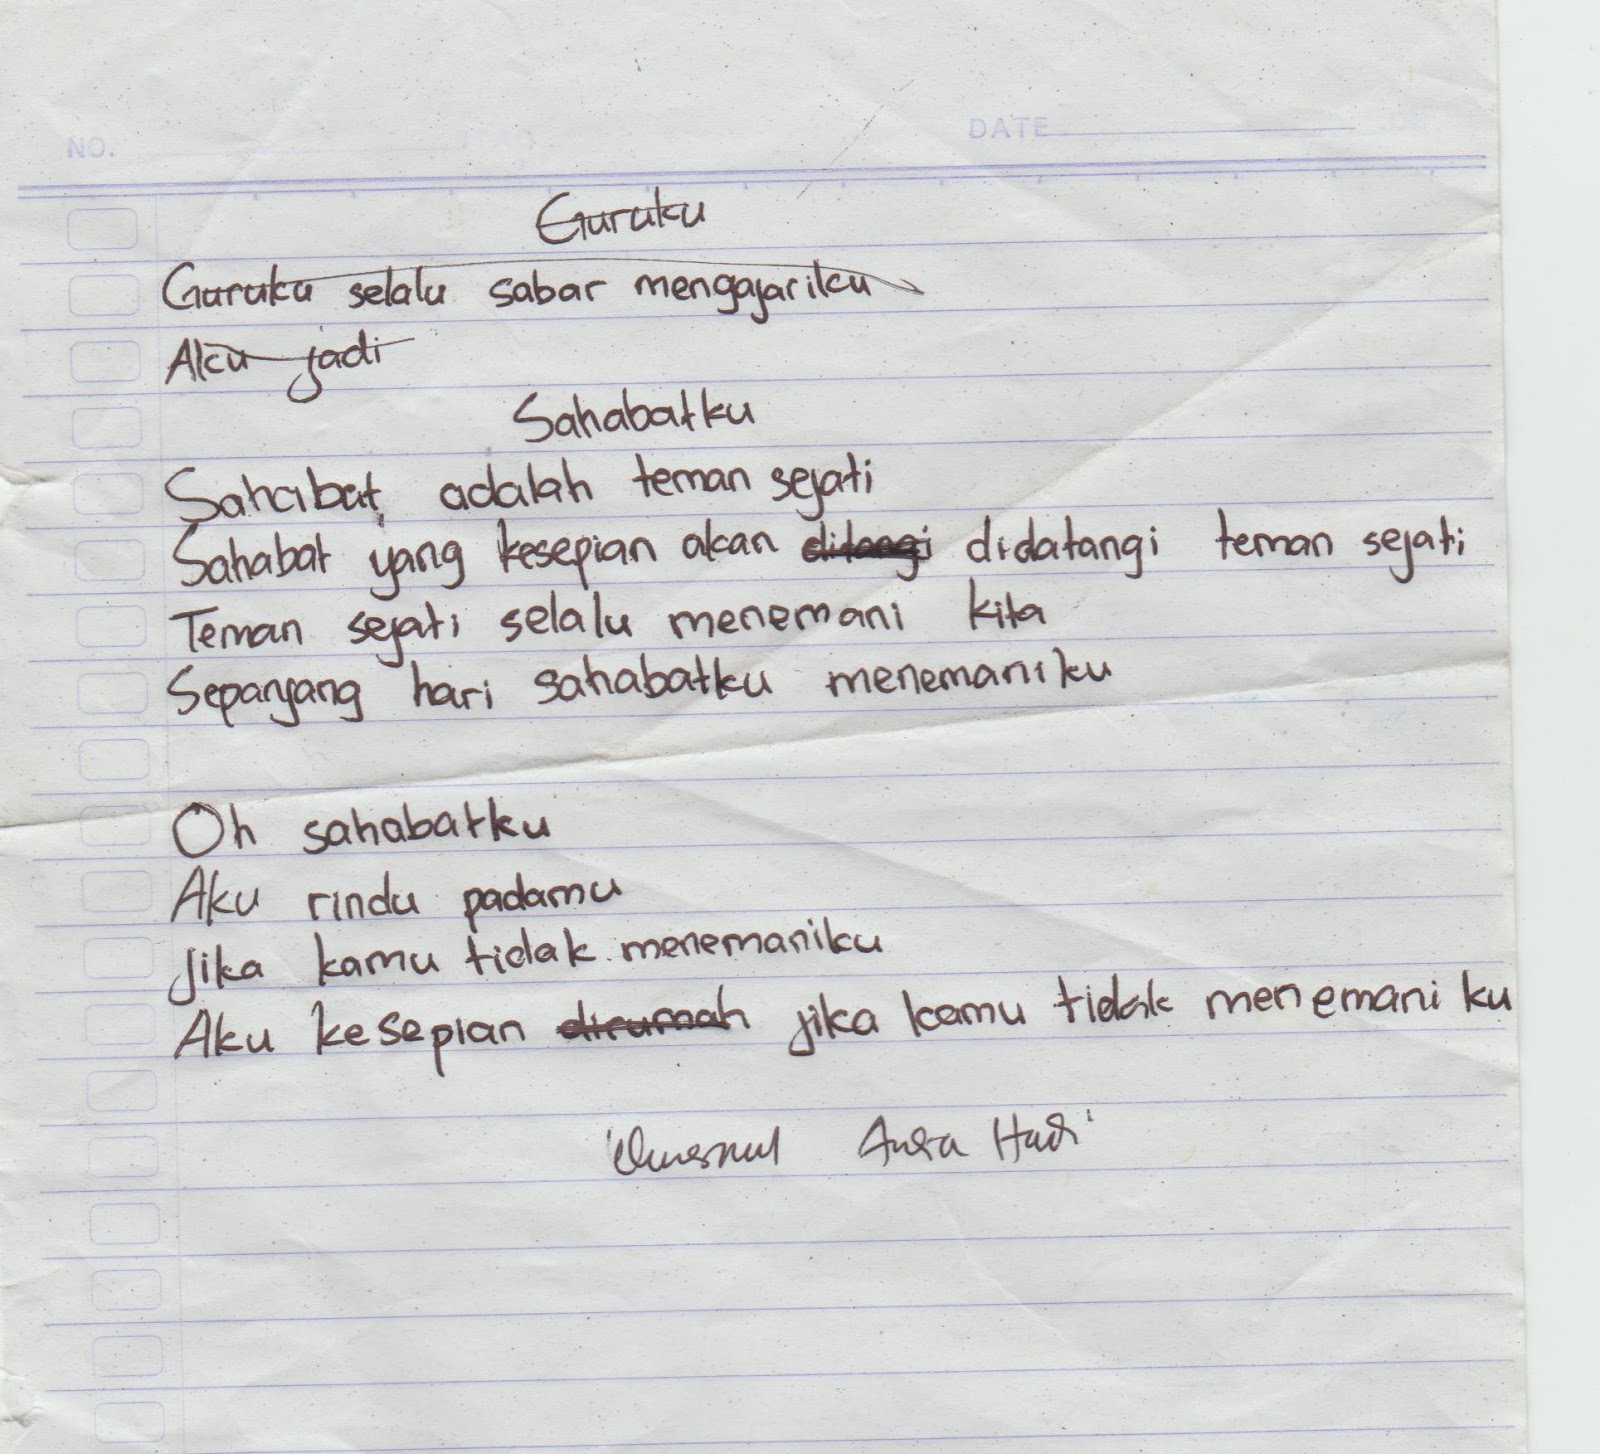 NO.
DATE
Guruku
Guruku selalu sabar mengajariku
Aku jadi
Sahabatku
Sahabat adalah teman sejati
Sahabat yang kesepian akan ditangi didatangi teman sejati
Teman sejati selalu menemani kita
Sepanjang hari sahabatku menemaniku
Oh sahabatku
Aku rindu padamu
Jika kamu tidak menemaniku
Aku kesepian dirumah jika kamu tidak menemani ku
Hadi